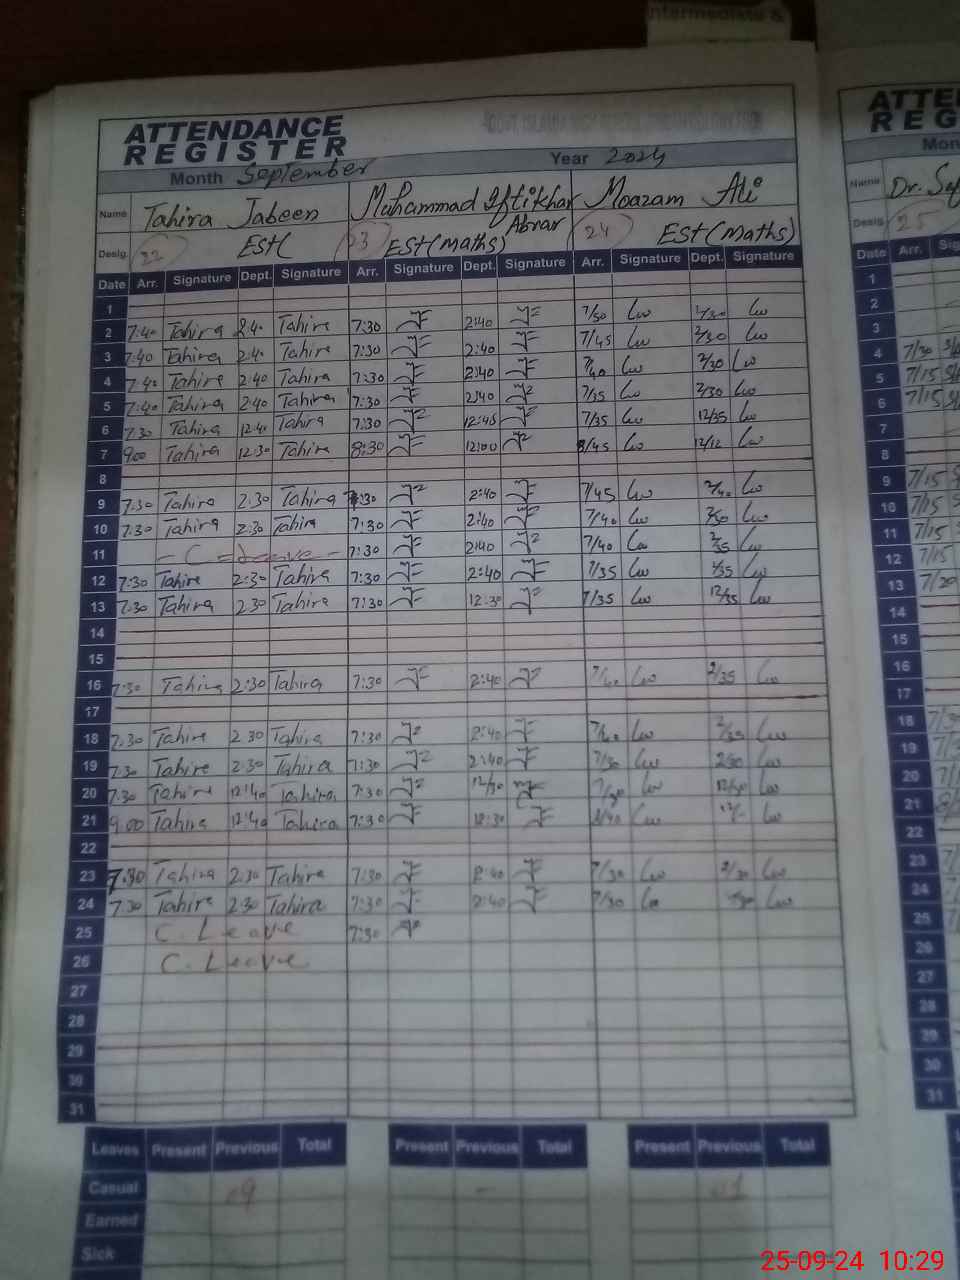 Intermediate &
ATTENDANCE
REGISTER
Month September Year 2024
Name Tahira Jabeen Muhammad Iftikhar Abrar Moazam Ali
Desig. 22 EST( 23 EST(maths) 24 EST(Maths)
Date Arr. Signature Dept. Signature Arr. Signature Dept. Signature Arr. Signature Dept. Signature
1
2 7:40 Tahira 2:40 Tahira 7:30 2:40 7/30
3 7:40 Tahira 2:40 Tahira 7:30 2:40 7/45 2/30
4 7:40 Tahira 2:40 Tahira 7:30 2:40 7/40 2/30
5 7:40 Tahira 2:40 Tahira 7:30 2:40 7/35 2/30
6 7:30 Tahira 12:40 Tahira 7:30 12:45 7/35 12/35
7 9:00 Tahira 12:30 Tahira 8:30 12:00 8/45 12/12
8
9 7:30 Tahira 2:30 Tahira 7:30 2:40 7/45 2/40
10 7:30 Tahira 2:30 Tahira 7:30 2:40 7/40 2/30
11 - C - Leave - 7:30 2:40 7/40 2/35
12 7:30 Tahira 2:30 Tahira 7:30 2:40 7/35 2/35
13 7:30 Tahira 2:30 Tahira 7:30 12:30 7/35 12/35
14
15
16 7:30 Tahira 2:30 Tahira 7:30 2:40 7/40 2/35
17
18 7:30 Tahira 2:30 Tahira 7:30 2:40 7/40 2/35
19 7:30 Tahira 2:30 Tahira 7:30 2:40 7/30 2/30
20 7:30 Tahira 12:40 Tahira 7:30 12/30 7/30 12/30
21 9:00 Tahira 12:40 Tahira 7:30 12:30 8/40
22
23 7:30 Tahira 2:30 Tahira 7:30 2:40 7/30 2/30
24 7:30 Tahira 2:30 Tahira 7:30 2:40 7/30
25 C. Leave 7:30
26 C. Leave
27
28
29
30
31
Leaves Present Previous Total Present Previous Total Present Previous Total
Casual 09 - 01
Earned
Sick
ATTEN
REG
Mon
Name Dr. Saf
Desig. 25
Date Arr. Sig
1
2
3
4 7/30
5 7/15
6 7/15
7
8
9 7/15
10 7/15
11 7/15
12 7/15
13 7/20
14
15
16
17
18
19
20
21
22
23
24
25
26
27
28
29
30
31
25-09-24 10:29